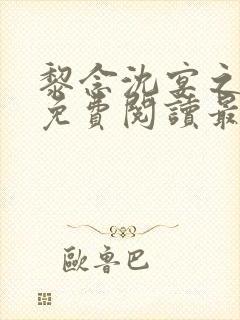 黎念沈宴之
免費閱讀最
歐魯巴